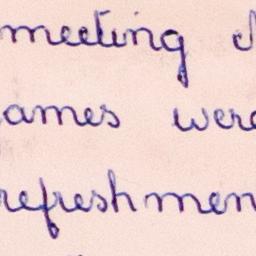 meeting
ames were
refreshmen